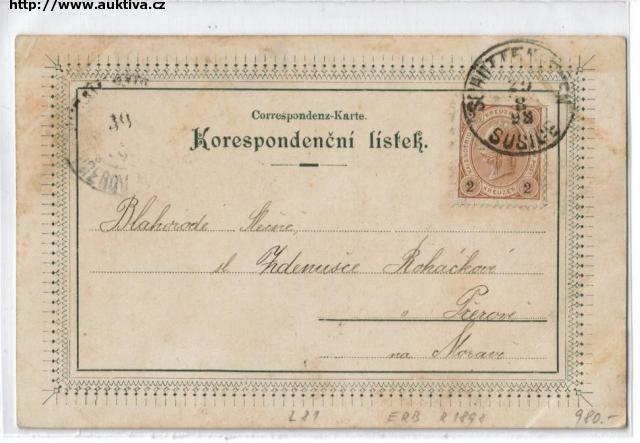 http://www.auktiva.cz
Correspondenz-Karte.
Korespondenční lístek.
SCHÜTTENHOFEN
29
8
98
SUSICE
2 KREUZER 2
30
Blahorodé Slečně,
sl Zdenušce Roháčkové
v Přerově
na Moravě
L 21 ERB R 1898 980.-